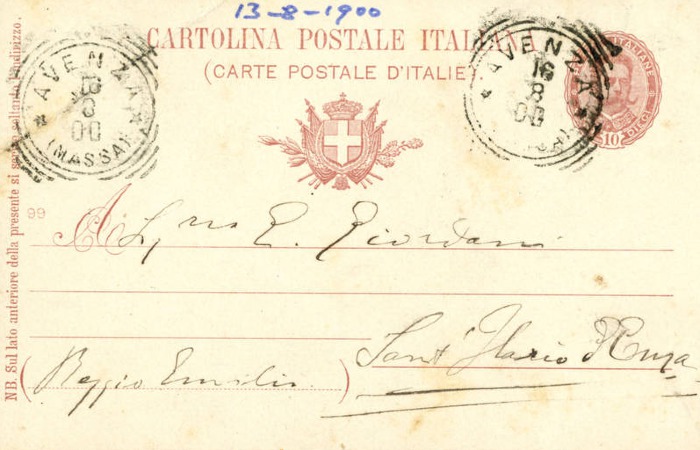 13-8-1900
CARTOLINA POSTALE ITALIANA
(CARTE POSTALE D'ITALIE)
AVENZA
16
8
00
(MASSA)
AVENZA
16
8
00
10
DIECI
NB. Sul lato anteriore della presente si scrive soltanto l'indirizzo.
99
A
E. Giordani
Sant'Ilario d'Enza
(Reggio Emilia)